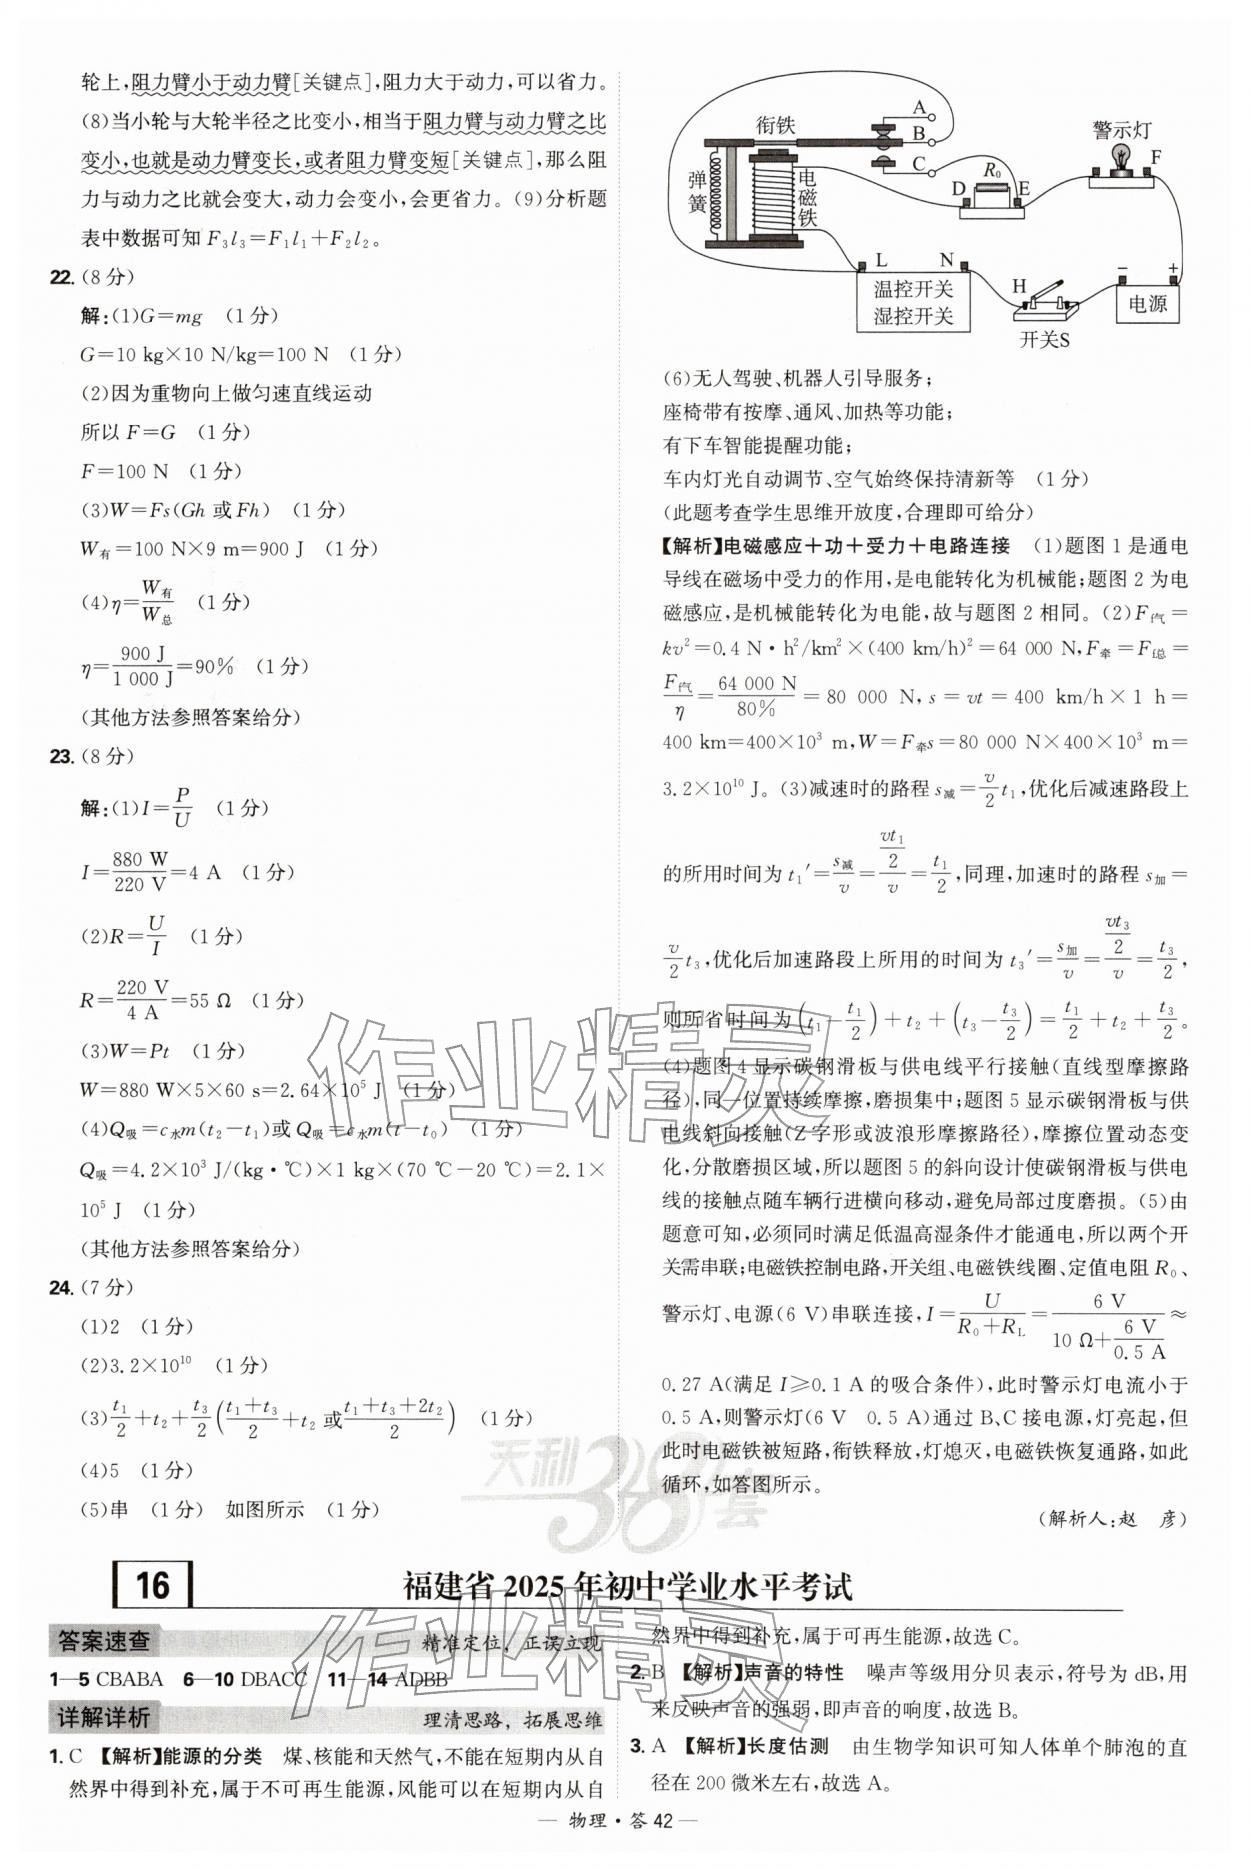 轮上,阻力臂小于动力臂[关键点],阻力大于动力,可以省力。
(8)当小轮与大轮半径之比变小,相当于阻力臂与动力臂之比
变小,也就是动力臂变长,或者阻力臂变短[关键点],那么阻
力与动力之比就会变大,动力会变小,会更省力。(9)分析题
表中数据可知 F₃l₃=F₁l₁+F₂l₂。
22.(8 分)
解:(1)G=mg (1 分)
G=10 kg×10 N/kg=100 N (1 分)
(2)因为重物向上做匀速直线运动
所以 F=G (1 分)
F=100 N (1 分)
(3)W=Fs(Gh 或 Fh) (1 分)
W有=100 N×9 m=900 J (1 分)
(4)η=W有/W总 (1 分)
η=900 J/1 000 J=90% (1 分)
(其他方法参照答案给分)
23.(8 分)
解:(1)I=P/U (1 分)
I=880 W/220 V=4 A (1 分)
(2)R=U/I (1 分)
R=220 V/4 A=55 Ω (1 分)
(3)W=Pt (1 分)
W=880 W×5×60 s=2.64×10⁵ J (1 分)
(4)Q吸=c水m(t₂-t₁)或 Q吸=c水m(t-t₀) (1 分)
Q吸=4.2×10³ J/(kg·℃)×1 kg×(70 ℃-20 ℃)=2.1×
10⁵ J (1 分)
(其他方法参照答案给分)
24.(7 分)
(1)2 (1 分)
(2)3.2×10¹⁰ (1 分)
(3)t₁/2+t₂+t₃/2((t₁+t₃)/2+t₂ 或(t₁+t₃+2t₂)/2) (1 分)
(4)5 (1 分)
(5)串 (1 分) 如图所示 (1 分)
A
B
C
衔铁
弹簧
电磁铁
D
R₀
E
警示灯
F
L
N
温控开关
湿控开关
H
开关S
-
+
电源
(6)无人驾驶、机器人引导服务;
座椅带有按摩、通风、加热等功能;
有下车智能提醒功能;
车内灯光自动调节、空气始终保持清新等 (1 分)
(此题考查学生思维开放度,合理即可给分)
【解析】电磁感应+功+受力+电路连接 (1)题图 1 是通电
导线在磁场中受力的作用,是电能转化为机械能;题图 2 为电
磁感应,是机械能转化为电能,故与题图 2 相同。(2)F汽=
kv²=0.4 N·h²/km²×(400 km/h)²=64 000 N,F牵=F总=
F汽/η=64 000 N/80%=80 000 N,s=vt=400 km/h×1 h=
400 km=400×10³ m,W=F牵s=80 000 N×400×10³ m=
3.2×10¹⁰ J。(3)减速时的路程 s减=v/2 t₁,优化后减速路段上
的所用时间为 t₁′=s减/v=(vt₁/2)/v=t₁/2,同理,加速时的路程 s加=
v/2 t₃,优化后加速路段上所用的时间为 t₃′=s加/v=(vt₃/2)/v=t₃/2,
则所省时间为(t₁-t₁/2)+t₂+(t₃-t₃/2)=t₁/2+t₂+t₃/2。
(4)题图 4 显示碳钢滑板与供电线平行接触(直线型摩擦路
径),同一位置持续摩擦,磨损集中;题图 5 显示碳钢滑板与供
电线斜向接触(Z 字形或波浪形摩擦路径),摩擦位置动态变
化,分散磨损区域,所以题图 5 的斜向设计使碳钢滑板与供电
线的接触点随车辆行进横向移动,避免局部过度磨损。(5)由
题意可知,必须同时满足低温高湿条件才能通电,所以两个开
关需串联;电磁铁控制电路,开关组、电磁铁线圈、定值电阻 R₀、
警示灯、电源(6 V)串联连接,I=U/(R₀+R_L)=6 V/(10 Ω+6 V/0.5 A)≈
0.27 A(满足 I⩾0.1 A 的吸合条件),此时警示灯电流小于
0.5 A,则警示灯(6 V 0.5 A)通过 B、C 接电源,灯亮起,但
此时电磁铁被短路,衔铁释放,灯熄灭,电磁铁恢复通路,如此
循环,如答图所示。
(解析人:赵 彦)
天利38套
作业精灵
16
福建省 2025 年初中学业水平考试
答案速查
精准定位,正误立现
1—5 CBABA 6—10 DBACC 11—14 ADBB
详解详析
理清思路,拓展思维
1. C 【解析】能源的分类 煤、核能和天然气,不能在短期内从自
然界中得到补充,属于不可再生能源,风能可以在短期内从自
然界中得到补充,属于可再生能源,故选 C。
2. B 【解析】声音的特性 噪声等级用分贝表示,符号为 dB,用
来反映声音的强弱,即声音的响度,故选 B。
3. A 【解析】长度估测 由生物学知识可知人体单个肺泡的直
径在 200 微米左右,故选 A。
作业精灵
— 物理·答 42 —